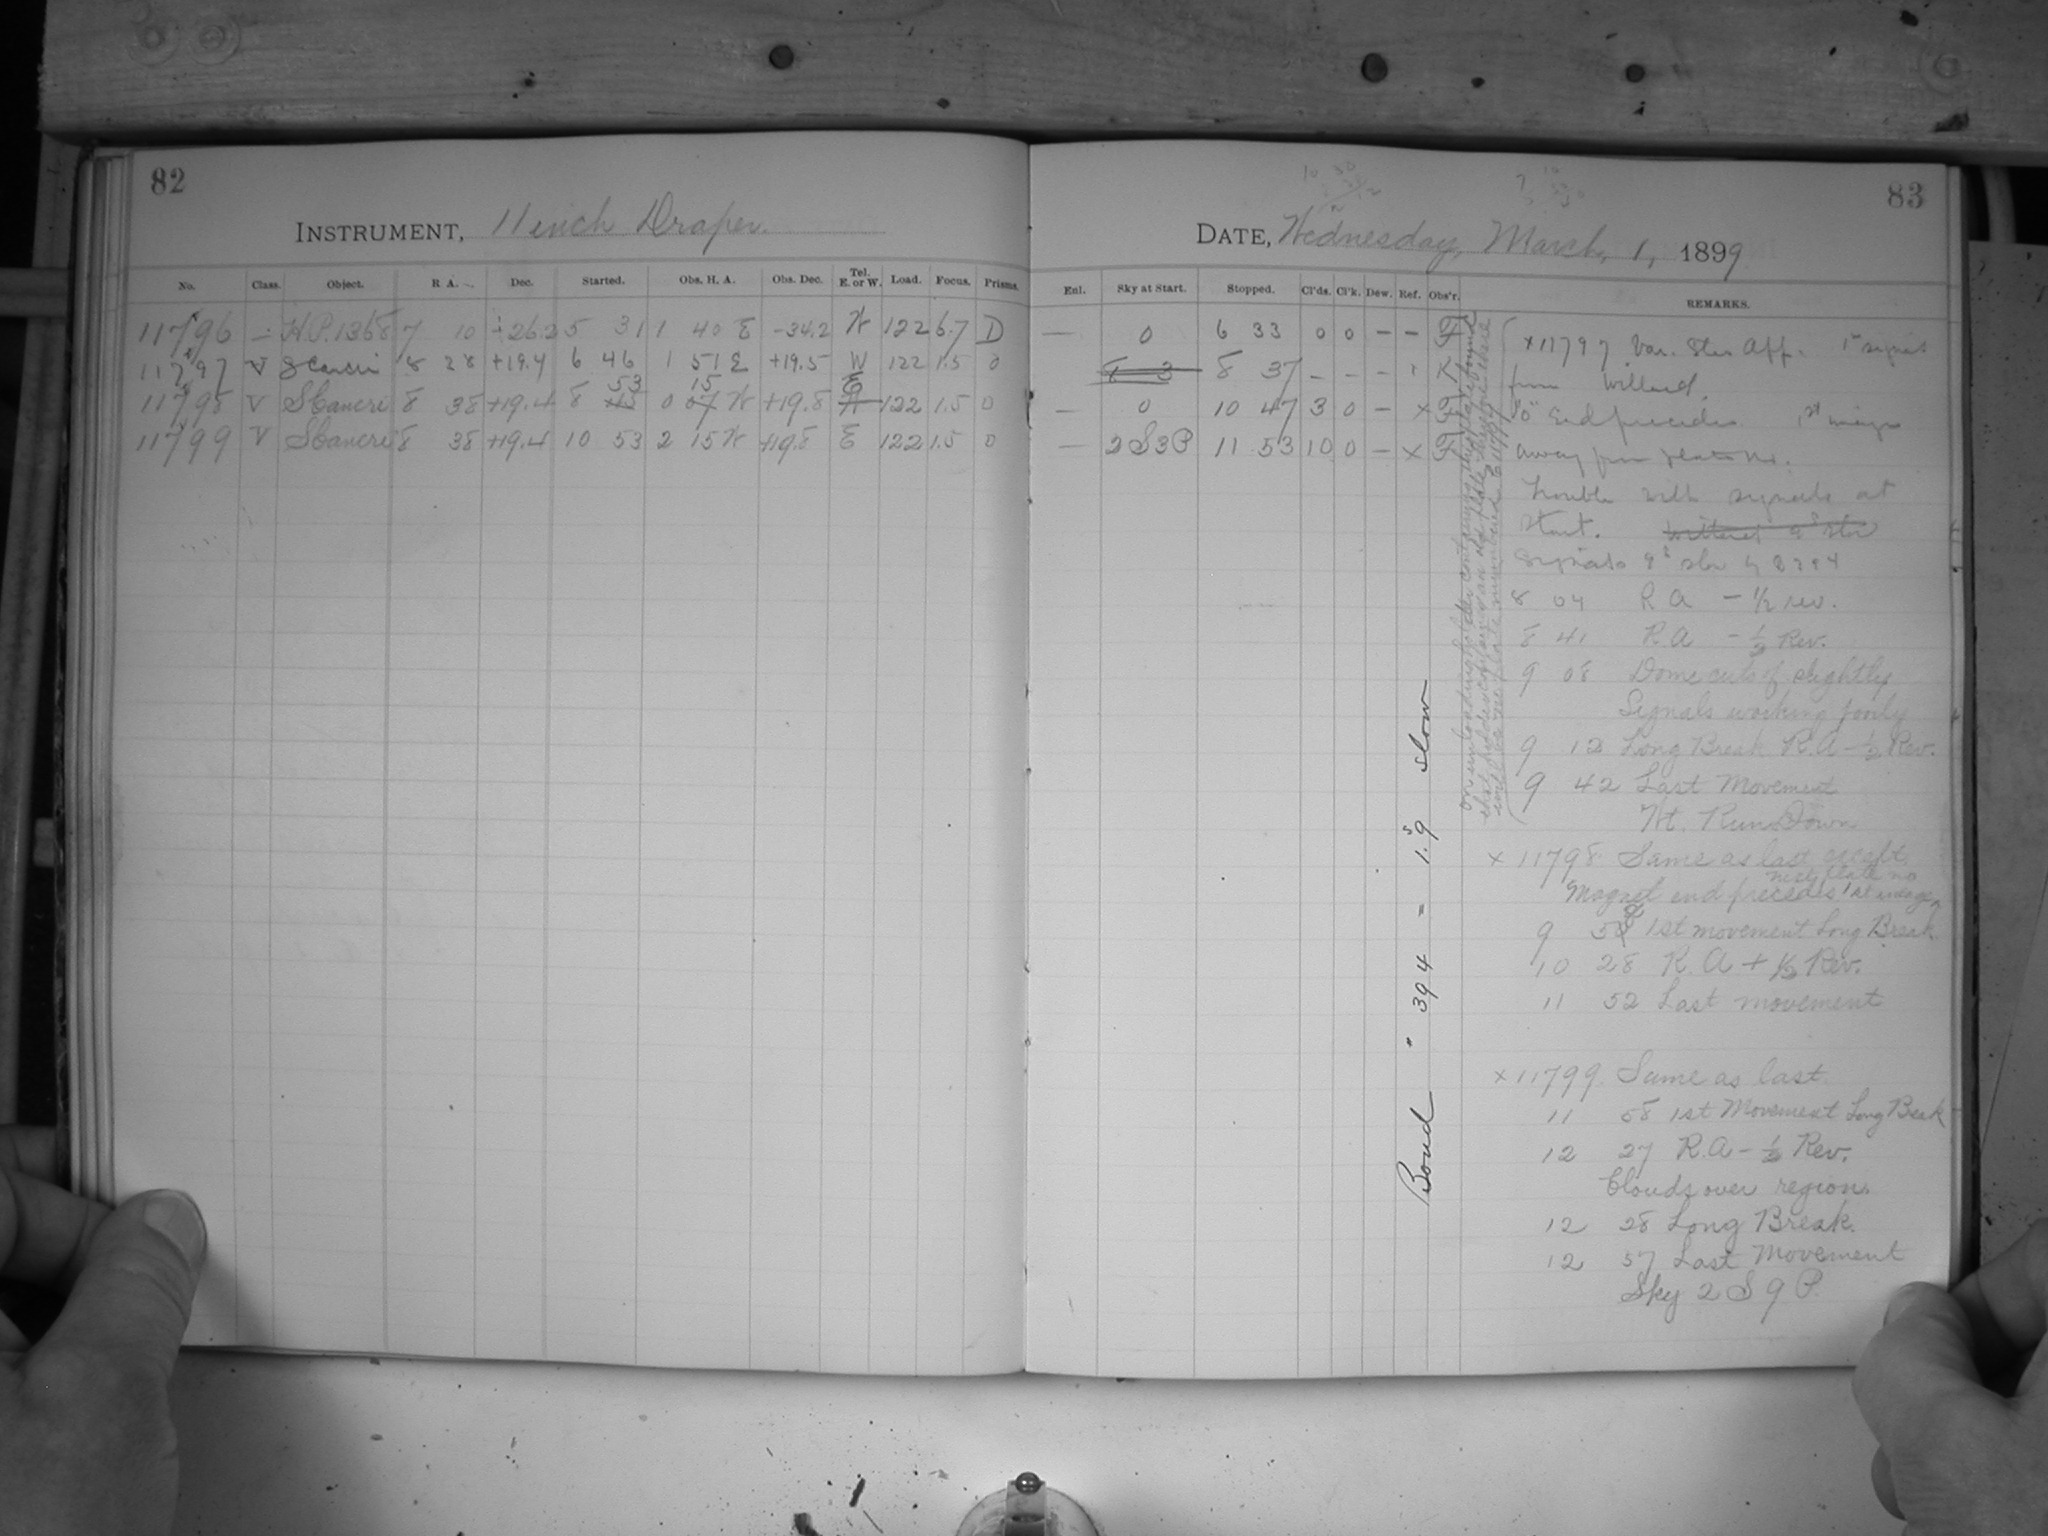 82
INSTRUMENT, 11 inch Draper.
No. Class. Object. R. A. Dec. Started. Obs. H. A. Obs. Dec. Tel. E. or W. Load. Focus. Prisms.
11796 – H.P. 1368 7 10 -26.2 5 31 1 40 E -34.2 W 122 6.7 D
11797 V S Cancri 8 28 +19.4 6 46 1 51 E +19.5 W 122 1.5 0
11798 V S Cancri 8 38 +19.4 8 53 0 15 W +19.8 E 122 1.5 0
11799 V S Cancri 8 38 +19.4 10 53 2 15 W +19.8 E 122 1.5 0
83
DATE, Wednesday, March, 1, 1899
Enl. Sky at Start. Stopped. Cl'ds. Cl'k. Dew. Ref. Obs'r. REMARKS.
— 0 6 33 0 0 – – F
8 37 – – –
— 0 10 47 3 0 – × F
— 2 S 3 P 11 53 10 0 – × F
×11797 Var. Star App. 1st signal
from Willard.
"S" End precedes. 1st image
away from plate no.
Trouble with signals at
start.
Signals 9s slow by 2294
8 04 R A – 1/2 rev.
8 41 R.A – 1/2 Rev.
9 08 Dome cuts off slightly
Signals working poorly
9 12 Long Break R.A – 1/2 Rev.
9 42 Last Movement
Wt. Run Down
×11798. Same as last except
Magnet end precedes 1st image
next plate no
9 1st movement Long Break.
10 28 R.A + 1/2 Rev.
11 52 Last movement
×11799. Same as last.
11 58 1st Movement Long Break
12 27 R.A – 1/2 Rev.
Clouds over region.
12 28 Long Break.
12 57 Last Movement
Sky 2 S 9 P.
Bond " 394 = 1.s9 slow